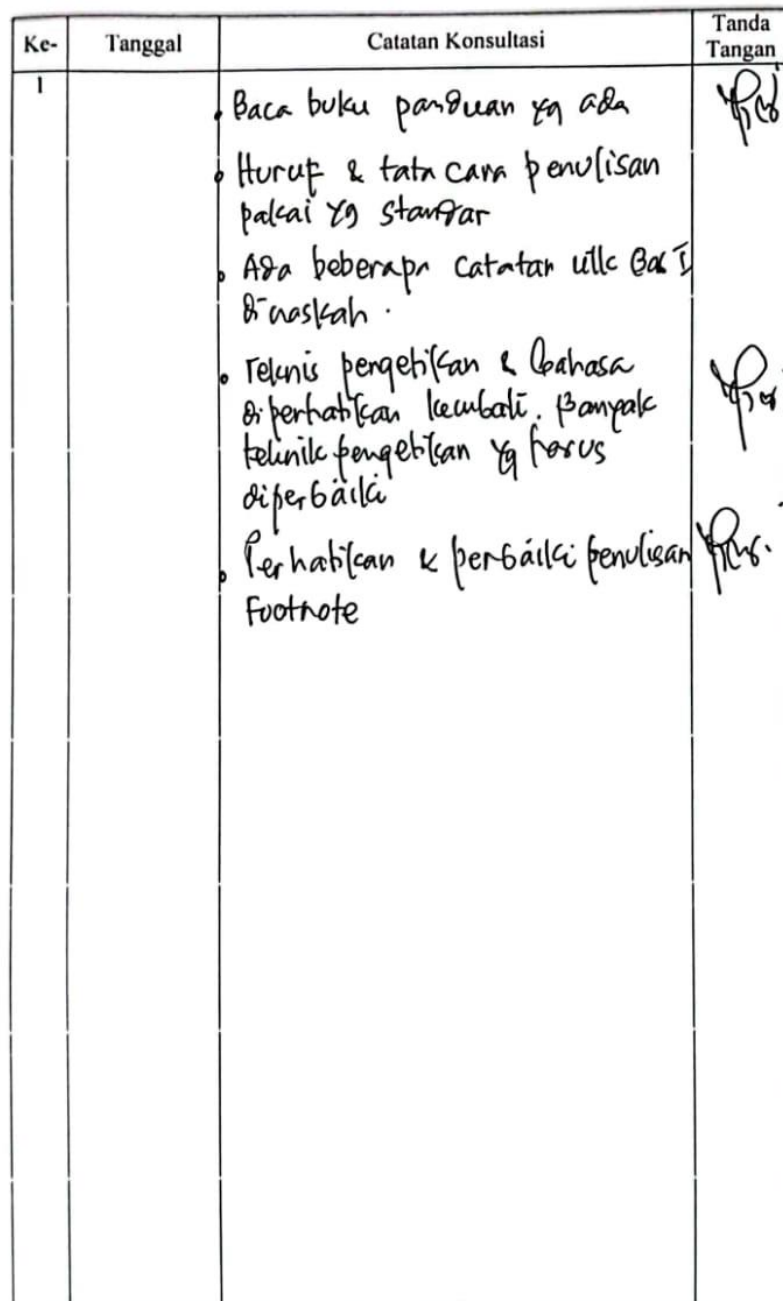 Ke- Tanggal Catatan Konsultasi Tanda Tangan
1
• Baca buku panduan yg ada
• Huruf & tata cara penulisan
pakai yg standar
• Ada beberapa catatan utk Bab I
di naskah.
• Teknis pengetikan & bahasa
diperhatikan kembali. Banyak
teknik pengetikan yg harus
diperbaiki
• Perhatikan & perbaiki penulisan
Footnote